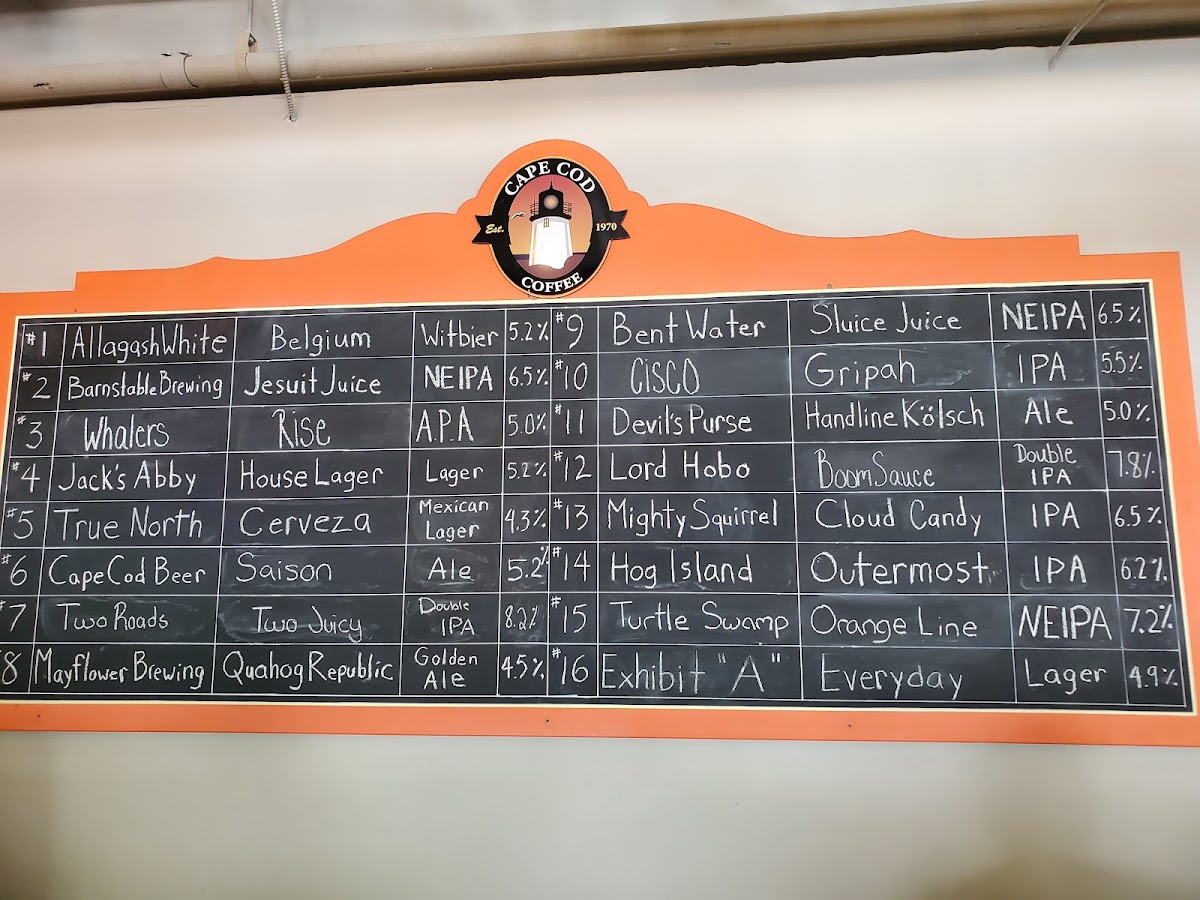 CAPE COD
Est. 1970
COFFEE
#1 Allagash White Belgium Witbier 5.2%
#2 Barnstable Brewing Jesuit Juice NEIPA 6.5%
#3 Whalers Rise A.P.A 5.0%
#4 Jack's Abby House Lager Lager 5.2%
#5 True North Cerveza Mexican Lager 4.3%
#6 Cape Cod Beer Saison Ale 5.2%
#7 Two Roads Two Juicy Double IPA 8.2%
#8 Mayflower Brewing Quahog Republic Golden Ale 4.5%
#9 Bent Water Sluice Juice NEIPA 6.5%
#10 CISCO Gripah IPA 5.5%
#11 Devil's Purse Handline Kölsch Ale 5.0%
#12 Lord Hobo Boom Sauce Double IPA 7.8%
#13 Mighty Squirrel Cloud Candy IPA 6.5%
#14 Hog Island Outermost IPA 6.2%
#15 Turtle Swamp Orange Line NEIPA 7.2%
#16 Exhibit "A" Everyday Lager 4.9%